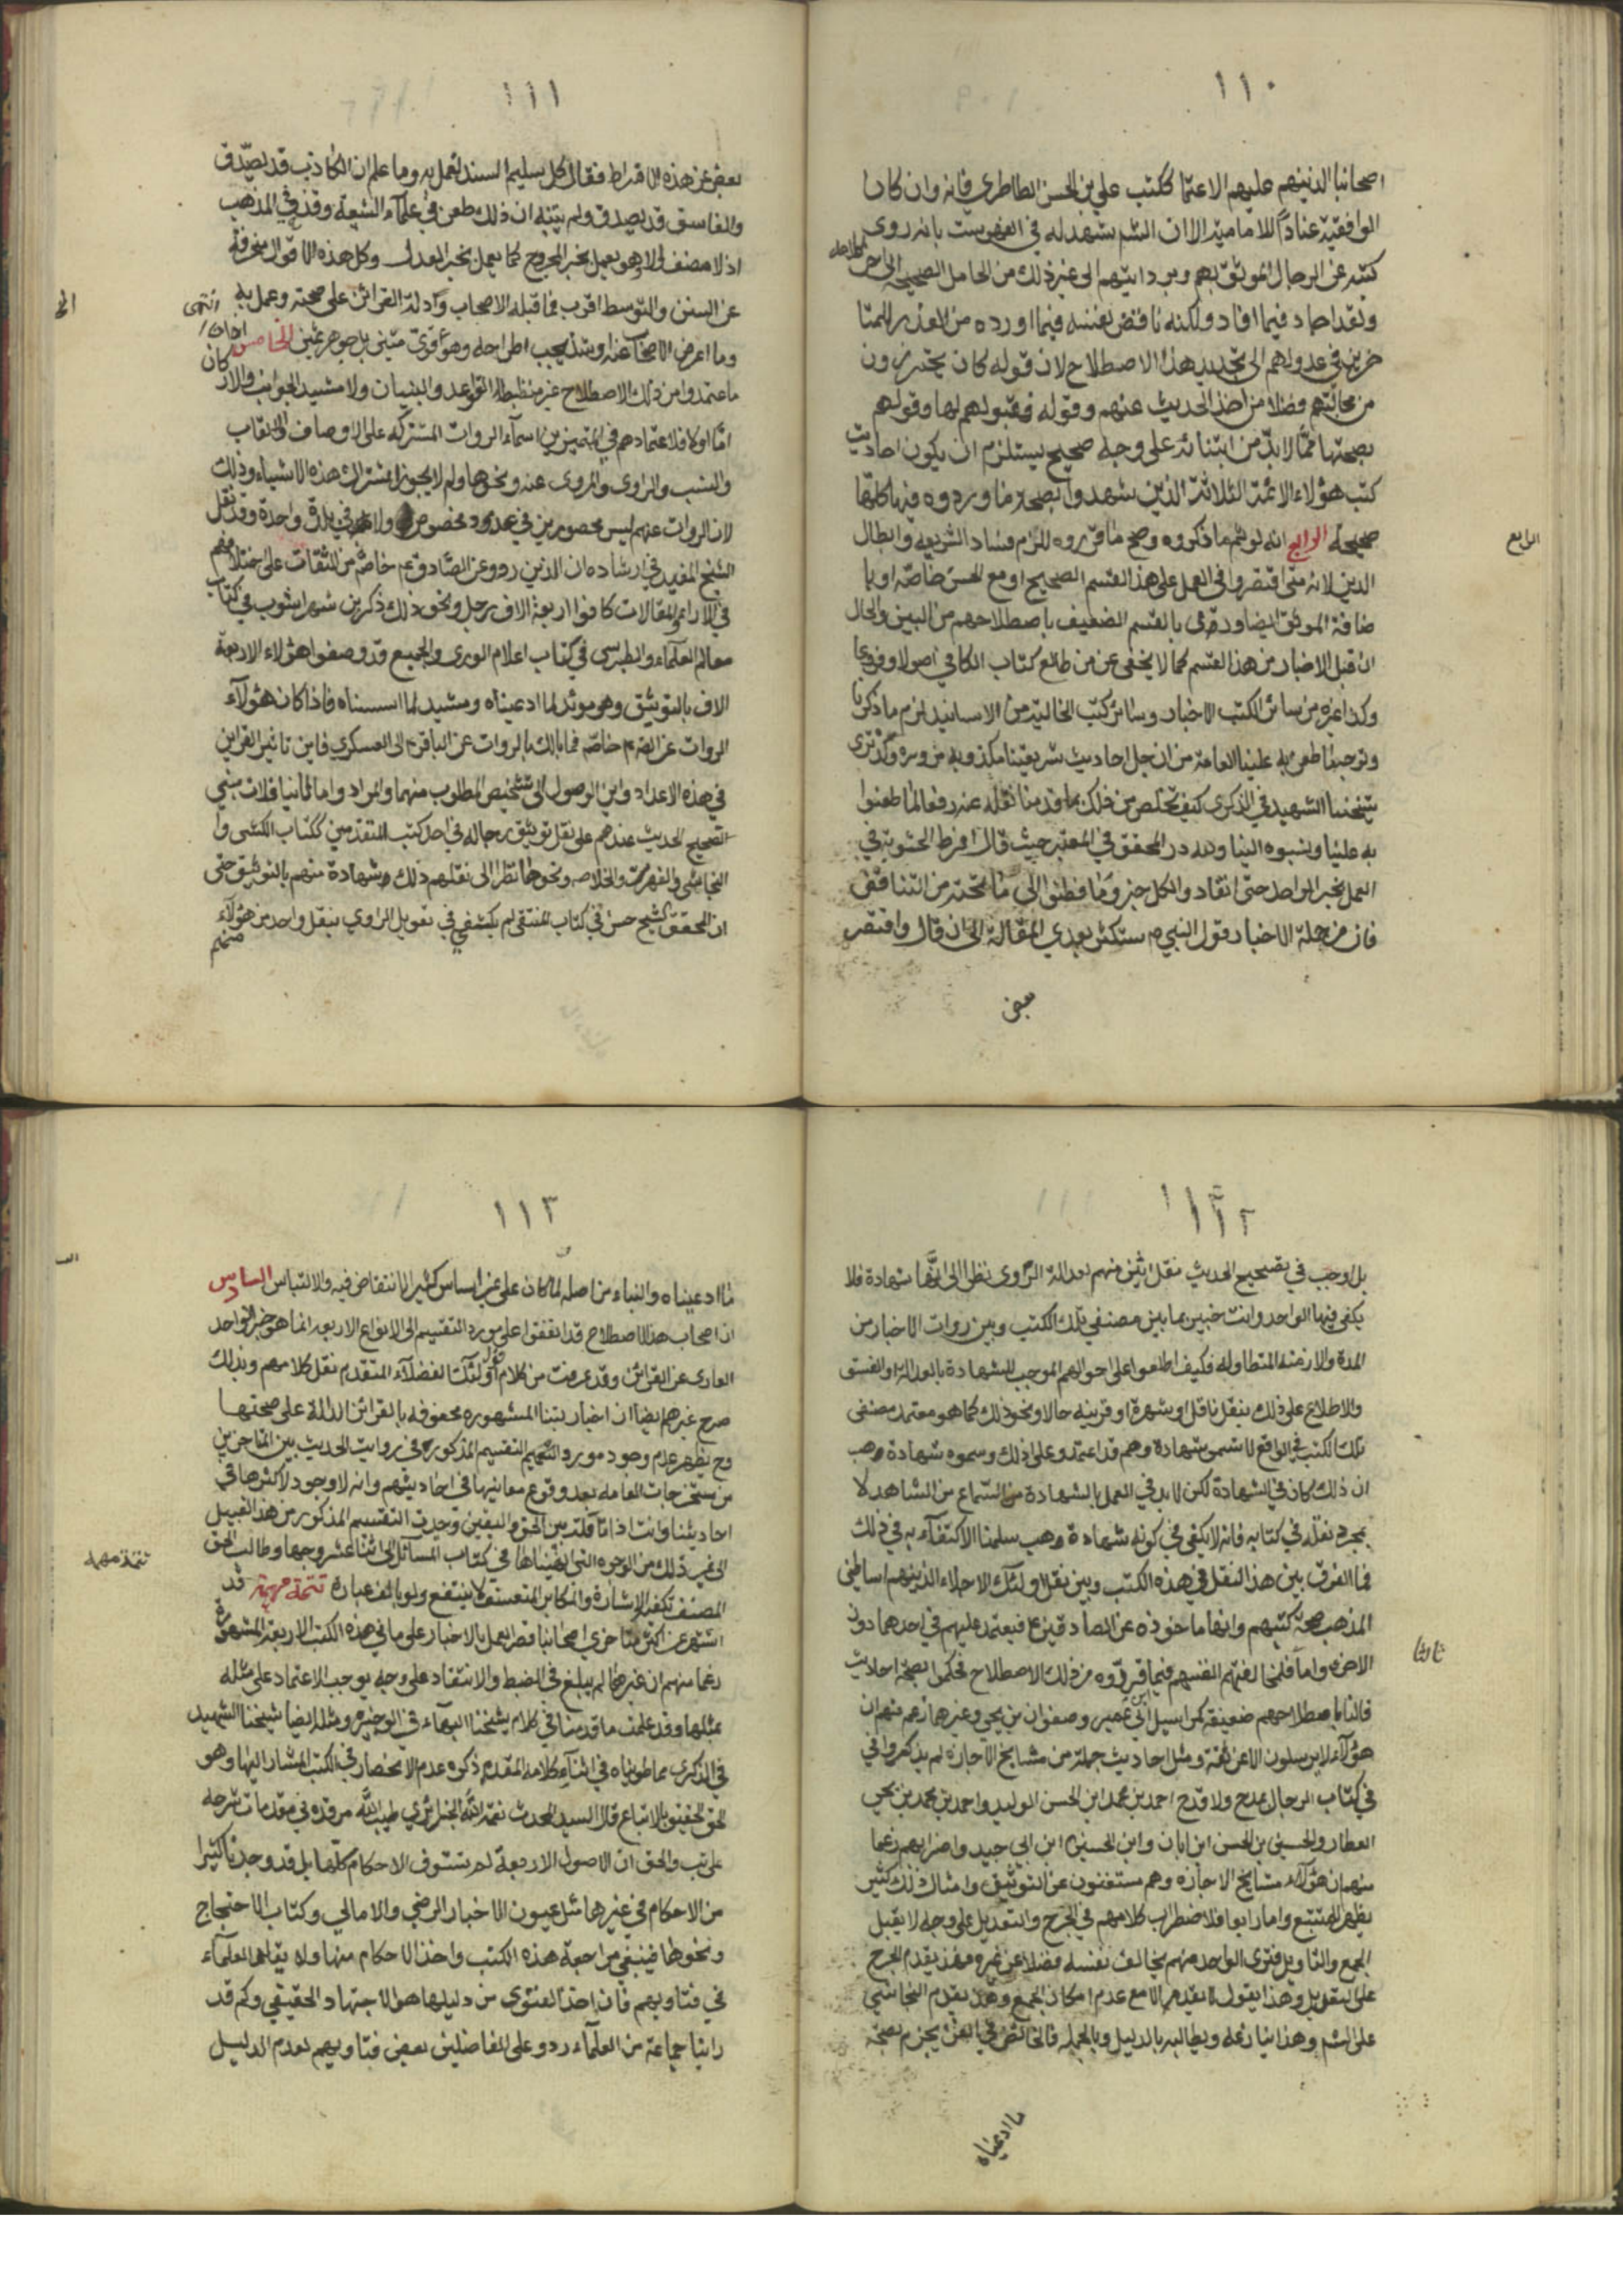 ١١٠
اصحابنا الذينهم عليهم الاعتماد ككتب علي بن الحسن الطاطري فانه وان كان
الواقفية عنادًا للامامية الا ان الشيخ شهد له في الفهرست بانه روى
كتبه عن الرجال الموثوق بهم وبرواياتهم الى غير ذلك من المحامل الصحيحة الى اخر كلامه
ولقد اجاد فيما افاد ولكنه ناقض نفسه فيما اورده من العذر للمتا
خرين في عدولهم الى تجديد هذا الاصطلاح لان قوله كان يحترزون
من مجالستهم فضلا من اخذ الحديث عنهم وقوله فقبولهم لها وقولهم
بصحتها مما لا بد من ابتنائه على وجه صحيح يستلزم ان يكون احاديث
كتب هؤلاء الائمة الثلاثة الذين شهدوا بصحة ما وردوه فيها كلها
صحيحة الرابع انه لو تم ما ذكروه وصح ما قرروه للزم فساد الشريعه وابطال
الرابع
الدين لانه متى اقتصروا في العمل على هذا القسم الصحيح او مع الحسن خاصة او با
ضافة الموثق ايضا ورمى بالقسم الضعيف باصطلاحهم من البين والحال
ان قبل الاخبار من هذا القسم كما لا يخفى عن من طالع كتاب الكافي اصولا وفروعا
وكذا غيره من سائر الكتب الاخبار وسائر كتب الخالية من الاسانيد لزم ما ذكرنا
وتوجه ما طعن به علينا العامة من ان جل احاديث شريعتنا مكذوبة مزورة وكذا ترى
شيخنا الشهيد في الذكرى كيف تخلص من ذلك بما قدمنا نقله عنه رفعا لما طعنوا
به علينا ونسبوه الينا ولله در المحقق في المعتبر حيث قال افرط الحشوية في
العمل بخبر الواحد حتى انقاد والكل خبر وما فطنوا الى ما تحته من التناقض
فان من جملة الاخبار قول النبي ص ستكثر بعدي المقالة الى ان قال واقتصر
بعض
١١١
بعض عن هذه الافراط فقال كل سليم السند يعمل به وما علم ان الكاذب قد يصدق
والفاسق قد يصدق ولم يتنبه ان ذلك طعن في علماء الشيعة وقدح في المذهب
اذ لا مصنف الا وهو يعمل بخبر المجروح كما يعمل بخبر العدل وكل هذه الاقوال منحرفة
عن السنن والتوسط اقرب فما قبله الاصحاب وادلة القرائن على صحته وعمل به انتهى
وما اعرض الاصحاب عنه او يشذ يجب اطراحه وهو قوى متين بل جوهر ثمين الخامس
ما اعتمدوا من ذلك الاصطلاح غير منظبطة القواعد والبنيان ولا مشيد الجوانب والاركان
اما اولا فلاعتمادهم في التميز بين اسماء الروات المشتركة على الاوصاف والالقاب
والنسب والراوى والمروى عنه ونحوها ولم لا يجوز اشتراك هذه الاشياء وذلك
لان الروات عنهم ليس محصورين في عدد مخصوص ولا في بلدة واحدة وقد نقل
الشيخ المفيد في ارشاده ان الذين رووا عن الصادق ع خاصة من الثقات على اختلافهم
في الاراء والمقالات كانوا اربعة الاف رجل ونحو ذلك ذكر بن شهراشوب في كتاب
معالم العلماء والطبرسى في كتاب اعلام الورى والجميع قد وصفوا هؤلاء الاربعة
الاف بالتوثيق وهو موئد لما ادعيناه ومشيد لما اسسناه فاذا كان هؤلاء
الروات عن الصادق خاصة فما بالك بالروات عن الباقر ع الى العسكري فاين تاثير القراين
في هذه الاعداد واين الوصول الى تشخيص المطلوب منهما والمراد واما ثانيا فلان مبني
تصحيح الحديث عندهم على نقل توثيق رجاله في احد كتب المتقدمين ككتاب الكشى و
النجاشي والفهرست والخلاصه ونحوها نظرا الى نقلهم ذلك وشهادة منهم بالتوثيق حتى
ان المحقق الشيخ حسن في كتاب المنتقى لم يكتفي في تعويل الراوي بنقل واحد من هؤلاء
منهم
١١٢
بل اوجب في تصحيح الحديث نقل اثنين منهم بعدالة الراوى نظرا الى انها شهادة فلا
يكفى فيها الواحد وانت خبير بما بين مصنفي تلك الكتب وبين روات الاخبار من
المدة والازمنة المتطاوله فكيف اطلعوا على احوالهم الموجب للشهادة بالعدالة او الفسق
والاطلاع على ذلك بنقل ناقل او شهرة او قرينه حال او نحو ذلك كما هو معتمد مصنفى
تلك الكتب في الواقع لا تسمى شهادة وهم قد اعتمدوا على ذلك وسموه شهادة وهب
ان ذلك كان في الشهادة لكن لا بد في العمل بالشهادة من السماع من الشاهد لا
بمجرد نقله في كتابه فانه لا يكفى في كونه شهادة وهب سلمنا الاكتفاء به في ذلك
فما الفرق بين هذا النقل في هذه الكتب وبين نقل اولئك الاجلاء الذينهم اساطين
المذهب صحة كتبهم وانها ماخوذه عن الصادقين ع فيعتمد عليهم في احدهما دون
الاخر واما ثالثا فلمخالفتهم انفسهم فيما قرروه من ذلك الاصطلاح فحكموا بصحة احاديث
ثالثا
قالنا باصطلاحهم ضعيفة كمراسيل ابن ابي عمير وصفوان بن يحيى وغيرهما زعم منهم ان
هؤلاء لا يرسلون الا عن ثقة ومثل احاديث جملة من مشايخ الاجازة لم يذكروا في
في كتاب الرجال بمدح ولا قدح احمد بن محمد ابن الحسن الوليد واحمد بن محمد بن يحيى
العطار والحسين بن الحسن ابن ابان وابن الحسين ابن ابي جيد واضرابهم زعما
منهم ان هؤلاء مشايخ الاجازه وهم مستغنون عن التوثيق وامثال ذلك كثير
يظهر للمتتبع واما رابعا فلاضطراب كلامهم في الجرح والتعديل على وجه لا يقبل
الجمع والتاويل فترى الواحد منهم يخالف نفسه فضلا عن غيره فهذا يقدم الجرح
على التعديل وهذا يقول لا يقدم الا مع عدم امكان الجمع وهذا يقدم النجاشي
على الشيخ وهذا ينازعه ويطالبه بالدليل وبالجمله فالخائض في الفن يجزم بصحة
ما ادعيناه
١١٣
ما ادعيناه والبناء من اصله لما كان على غير اساس كثر الانتقاض فيه والالتباس السادس
ان اصحاب هذا الاصطلاح قد اتفقوا على مورد التقسيم الى الانواع الاربعه انما هو خبر الواحد
العارى عن القرائن وقد عرفت من كلام اولئك الفضلاء المتقدم نقل كلامهم وبذلك
صرح غيرهم ايضا ان اخبار كتبنا المشهوره محفوفه بالقرائن الدالة على صحتها
وح يظهر عدم وجود مورد التقسيم المذكور في روايت الحديث بين المتاخرين
من مستخرجات العامه بعد وقوع معانيها في احاديثهم وانه لا وجود لاكثرها في
احاديثنا وانت اذا تاملت بين الحق واليقين وجدت التقسيم المذكور من هذا القبيل
الى غير ذلك من الوجوه التى انهيناها في كتاب المسائل الى اثنا عشر وجها وطالب الحق
المصنف تكفيه الاشارة والمكابر المتعسف لا ينتفع ولو بالف عبارة تتمة مهمة قد
تتمة مهمه
اشتهر عن اكثر متاخري اصحابنا قصر العمل بالاخبار على ما في هذه الكتب الاربعة المشهورة
زعما منهم ان غيرها لم يبلغ في الضبط والانتقاد على وجه يوجب الاعتماد على مثله
بمثلها وقد علمت ما قدمنا في كلام شيخنا البهاء في الوجيزه ومثله ايضا شيخنا الشهيد
في الذكرى مما طويناه في اثناء كلامه المتقدم ذكره عدم الانحصار في الكتب المشار اليها وهو
الحق الحقيق بالاتباع قال السيد المحدث نعمة الله الجزائري طيب الله مرقده في مقدمات شرحه
على تب والحق ان الاصول الاربعة لم تستوف الاحكام كلها بل قد وجدنا كثيرا
من الاحكام في غيرها مثل عيون الاخبار الرضي والامالي وكتاب الاحتجاج
ونحوها فينبغي مراجعة هذه الكتب واخذ الاحكام منها ولا يقلد العلماء
في فتاويهم فان اخذ الفتوى من دليلها هو الاجتهاد الحقيقي وكم قد
راينا جماعة من العلماء ردوا على الفاضلين بعض فتاويهم لعدم الدليل